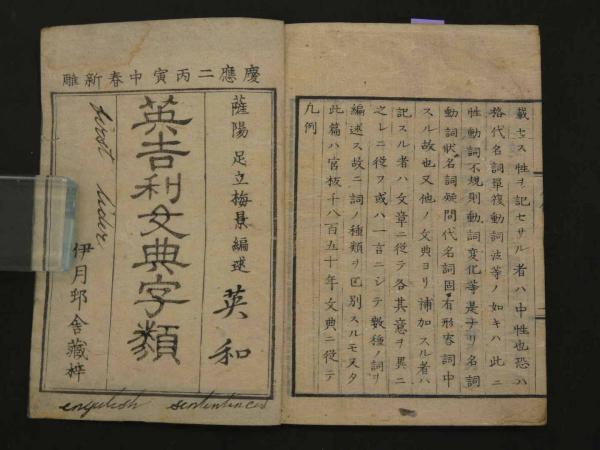 慶應二丙寅中春新雕
薩陽 足立梅景編述
英和
英吉利文典字類
伊月邨舍藏梓
first lider
engulish sententinces
凡例
此篇ハ官板千八百五十年文典ニ從テ
編述ス故ニ詞ノ種類ヲ区別スルモ又タ
之レニ從フ或ハ一言ニシテ數種ノ詞ヲ
記スル者ハ文章ニ從テ各其意ヲ異ニ
スル故也又他ノ文典ヨリ補加スル者ハ
動詞狀名詞疑問代名詞固有形容詞中
性動詞不規則動詞変化等是ナリ名詞
格代名詞單複動詞法等ノ如キハ此ニ
載セス性ヲ記セサル者ハ中性也恐ハ